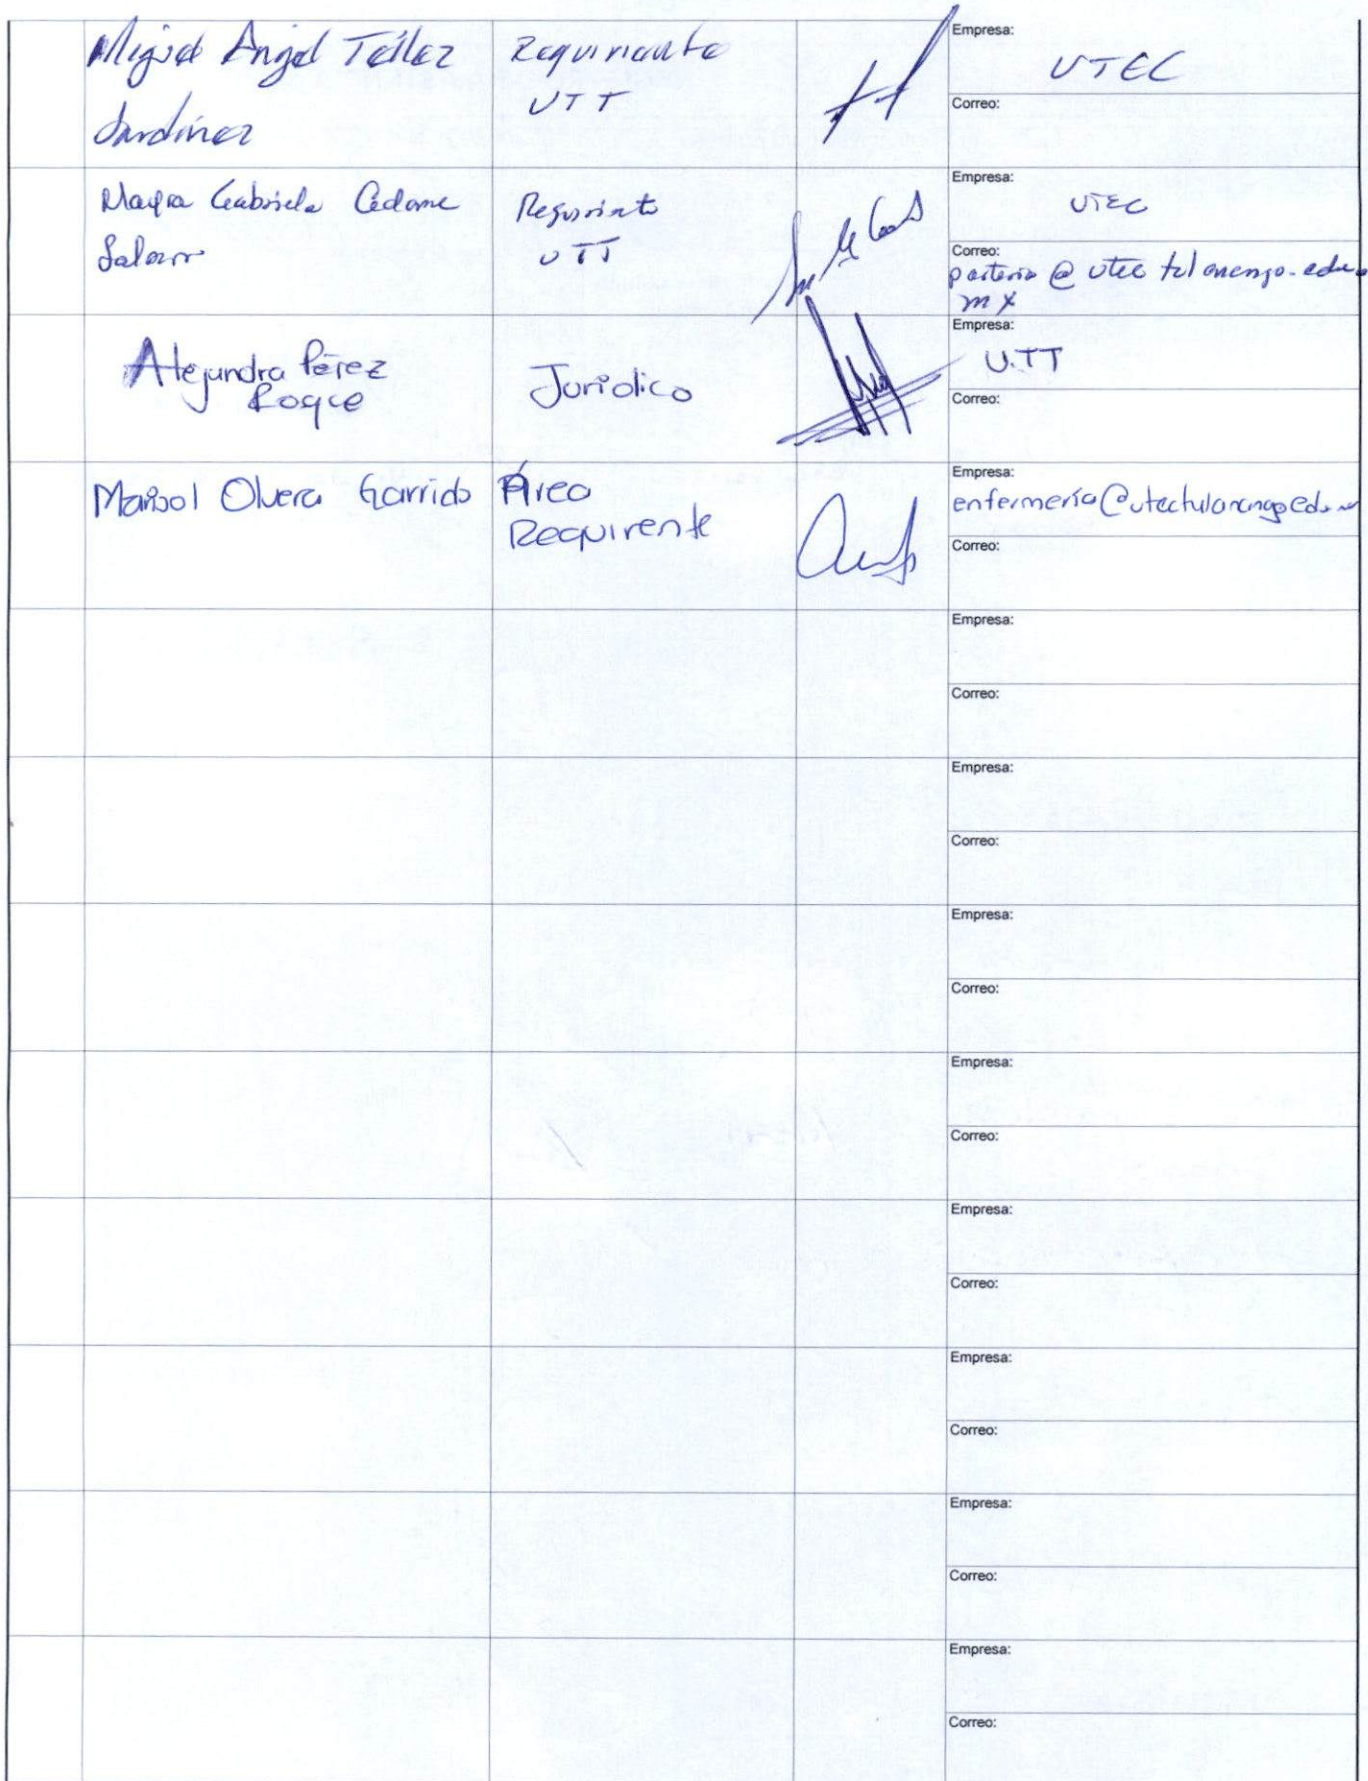 Miguel Angel Tellez
Jardinez
Requiriente
UTT
Empresa:
UTEC
Correo:
Mayra Gabriela
Requirinte
UTT
Empresa:
UTEC
Correo:
parteria @ utec tulancingo.edu.
mx
Alejandra Pérez
Roque
Juridico
Empresa:
U.TT
Correo:
Marisol Olvera Garrido
Área
Requirente
Empresa:
enfermería@utectulancingo.edu.m
Correo:
Empresa:
Correo:
Empresa:
Correo:
Empresa:
Correo:
Empresa:
Correo:
Empresa:
Correo:
Empresa:
Correo:
Empresa:
Correo:
Empresa:
Correo: